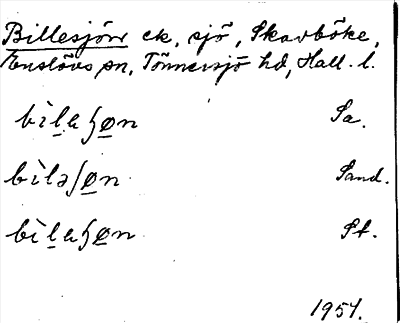 Billesjön ek. sjö, Skavböke,
Enslövs sn, Tönnersjö hd, Hall. l.
bìla ɧøn Sa.
bìləʃøn Sand.
bìlaɧøn St.
1957.